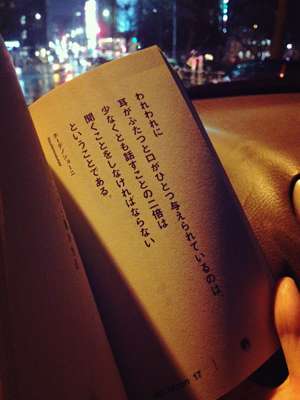 われわれに
耳がふたつと口がひとつ与えられているのは、
少なくとも話すことの二倍は
聞くことをしなければならない
ということである。
17